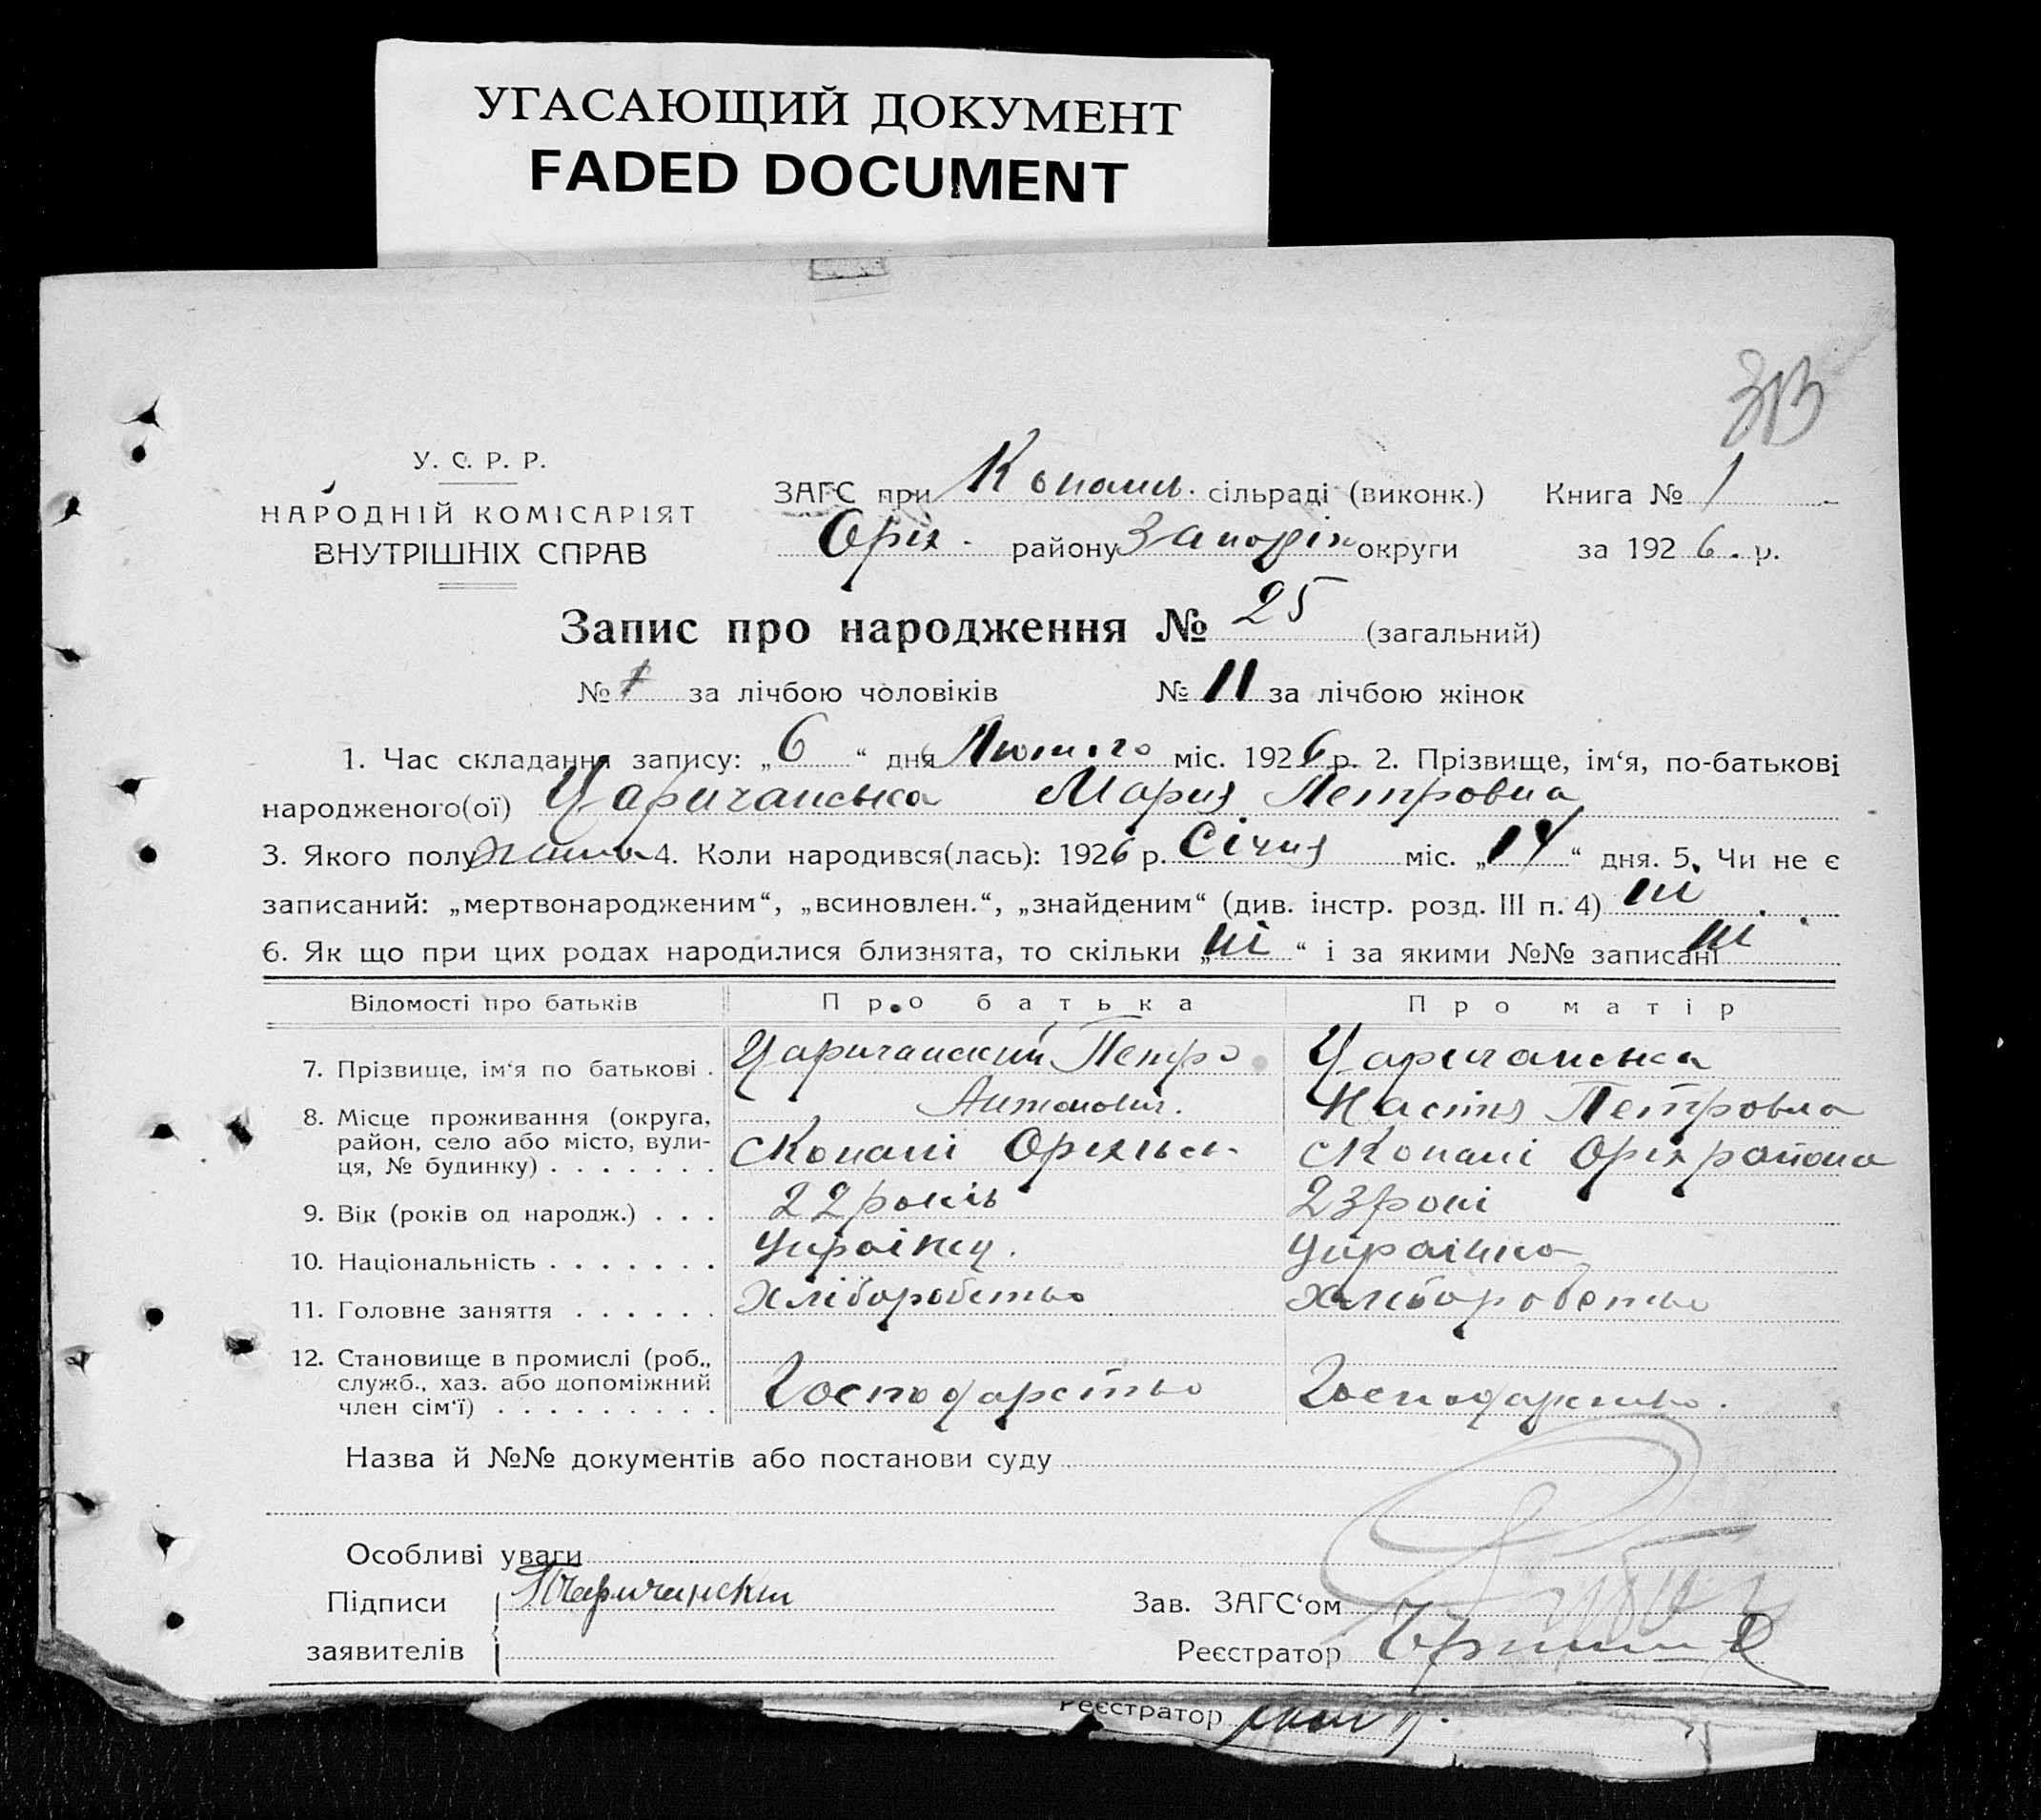 УГАСАЮЩИЙ ДОКУМЕНТ
FADED DOCUMENT
313
У. С. Р. Р.
НАРОДНІЙ КОМІСАРІЯТ
ВНУТРІШНІХ СПРАВ
ЗАГС при Копань. сільраді (виконк.) Книга № 1
Оріх. району Запоріж округи за 1926. р.
Запис про народження № 25 (загальний)
№ за лічбою чоловіків № 11 за лічбою жінок
1. Час складання запису: „6“ дня Лютого міс. 1926 р. 2. Прізвище, ім‘я, по-батькові
народженого(ої) Царичанська Мария Петровна
3. Якого полу жинь 4. Коли народився(лась): 1926 р. Січня міс. „14“ дня. 5. Чи не є
записаний: „мертвонародженим“, „всиновлен.“, „знайденим“ (див. інстр. розд. III п. 4) ні
6. Як що при цих родах народилися близнята, то скільки „ні“ і за якими №№ записані ні
Відомості про батьків Про батька Про матір
7. Прізвище, ім‘я по батькові . Царичанский Петро Антонович. Царичанська Настя Петровна
8. Місце проживання (округа, район, село або місто, вулиця, № будинку) . . . . . . . С Копані Оріхльсь. С Копані Оріх района
9. Вік (років од народж.) . . . 22 років 23 роки
10. Національність . . . . . . . Українц. Українка
11. Головне заняття . . . . . . Хліборобство Хліборобство
12. Становище в промислі (роб., служб., хаз. або допоміжний член сім‘ї) . . . . . . . . . Господарство Господарство.
Назва й №№ документів або постанови суду
Особливі уваги
Підписи заявителів Царичанский
Зав. ЗАГС‘ом
Реєстратор
Реєстратор